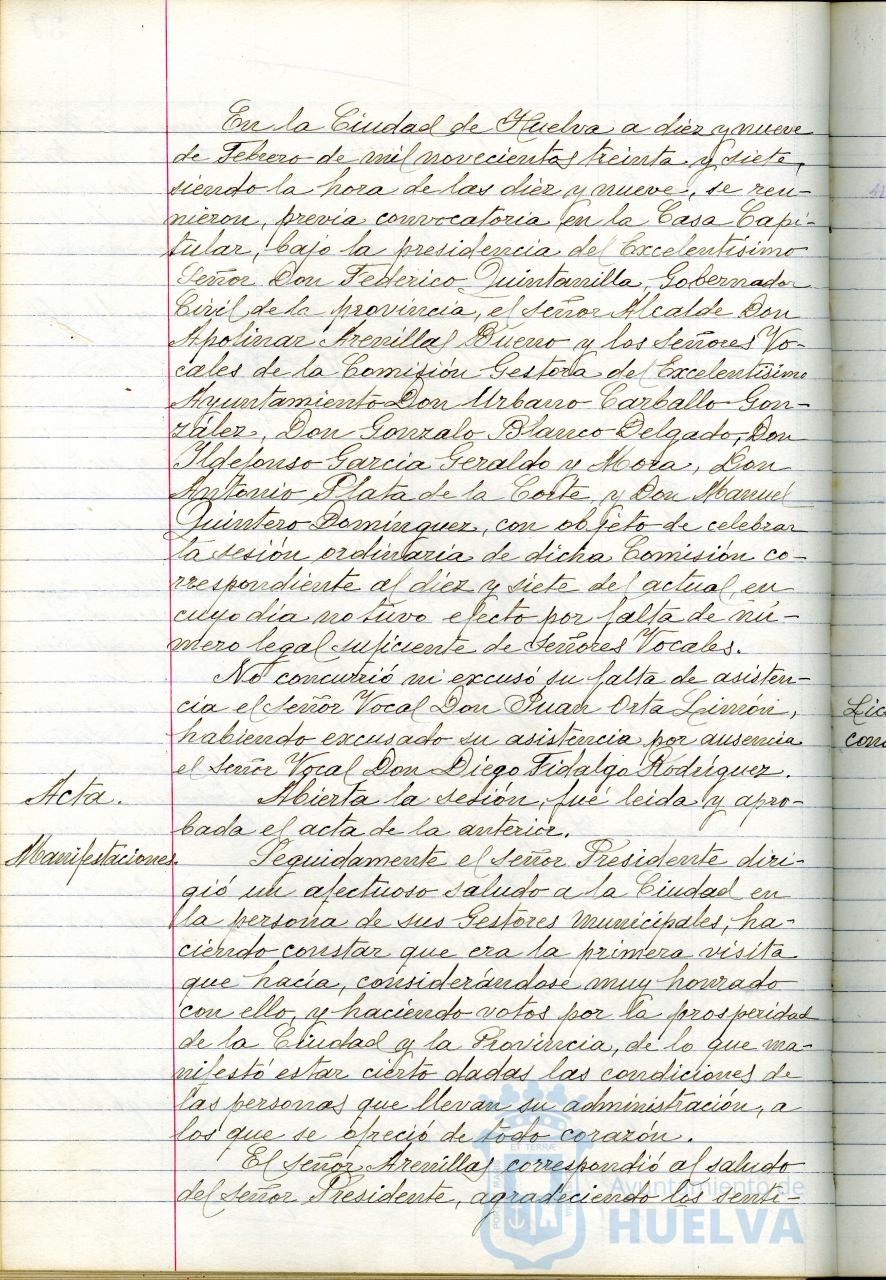 En la Ciudad de Huelva a diez y nueve
de Febrero de mil novecientos treinta y siete,
siendo la hora de las diez y nueve, se reu-
nieron, previa convocatoria en la Casa Capi-
tular, bajo la presidencia del Excelentísimo
Señor Don Federico Quintanilla, Gobernador
Civil de la provincia, el señor Alcalde Don
Apolinar Arenillas Bueno y los Señores Vo-
cales de la Comisión Gestora del Excelentísimo
Ayuntamiento Don Urbano Carballo Gon-
zález, Don Gonzalo Blanco Delgado, Don
Ildefonso García Geraldo y Mora, Don
Antonio Plata de la Corte, y Don Manuel
Quintero Domínguez, con objeto de celebrar
la sesión ordinaria de dicha Comisión co-
rrespondiente al diez y siete del actual, en
cuyo día no tuvo efecto por falta de nú-
mero legal suficiente de señores Vocales.
No concurrió ni excusó su falta de asisten-
cia el señor Vocal Don Juan Orta Limón,
habiendo excusado su asistencia por ausencia
el señor Vocal Don Diego Fidalgo Rodríguez.
Acta.
Abierta la sesión, fué leida y apro-
bada el acta de la anterior.
Manifestaciones.
Seguidamente el señor Presidente diri-
gió un afectuoso saludo a la Ciudad en
la persona de sus Gestores municipales, ha-
ciendo constar que era la primera visita
que hacía, considerándose muy honrado
con ello, y haciendo votos por la prosperidad
de la Ciudad y la Provincia, de lo que ma-
nifestó estar cierto dadas las condiciones de
las personas que llevan su administración, a
los que se ofreció de todo corazón.
El señor Arenillas correspondió al saludo
del señor Presidente, agradeciendo los senti-
Lic
con
Ayuntamiento de
HUELVA